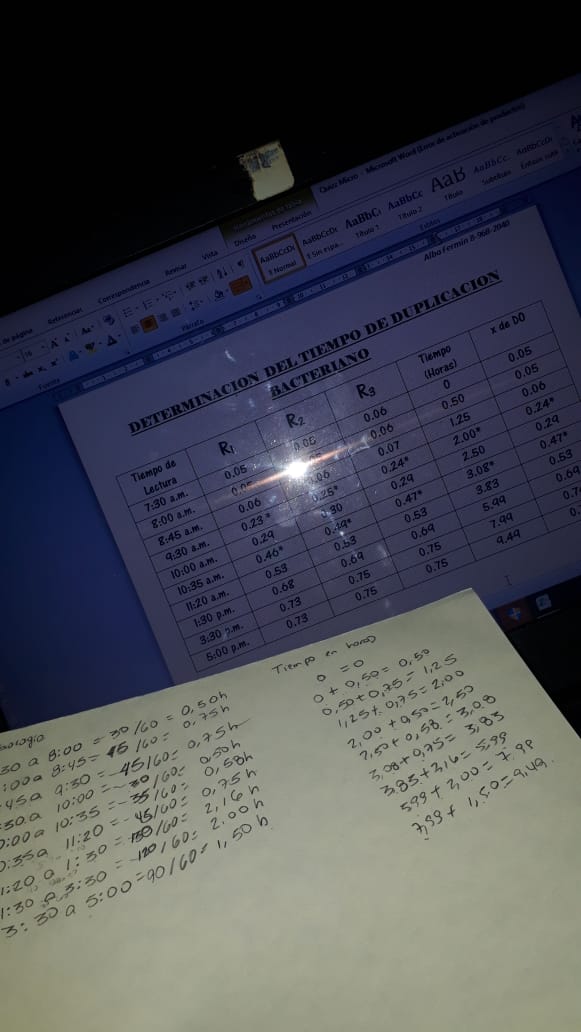 Quizz Micro - Microsoft Word (Error de activación de productos)
Diseño Presentación
Referencias Correspondencia Revisar Vista
AaBbCcDc AaBbCcDc AaBbC AaBbCc AaB AaBbCc. AaBbCcD
¶ Normal ¶ Sin espa... Título 1 Título 2 Título Subtítulo Énfasis sutil
Fuente Párrafo Estilos
Alba Fermin 8-968-2040
DETERMINACION DEL TIEMPO DE DUPLICACION
BACTERIANO
Tiempo de Lectura R1 R2 R3 Tiempo (Horas) x de DO
7:30 a.m. 0.05 0.05 0.06 0 0.05
8:00 a.m. 0.05 0.06 0.50 0.05
8:45 a.m. 0.06 0.06 0.07 1.25 0.06
9:30 a.m. 0.23* 0.25* 0.24* 2.00* 0.24*
10:00 a.m. 0.29 0.30 0.29 2.50 0.29
10:35 a.m. 0.46* 0.47* 3.08* 0.47*
11:20 a.m. 0.53 0.53 0.53 3.83 0.53
1:30 p.m. 0.68 0.69 0.69 5.99
3:30 p.m. 0.73 0.75 0.75 7.99
5:00 p.m. 0.73 0.75 0.75 9.49
30 a 8:00 = 30/60 = 0,50h
:00 a 8:45 = 45/60 = 0,75h
45 a 9:30 = 45/60 = 0,75h
:30 a 10:00 = 30/60 = 0,50h
:00 a 10:35 = 35/60 = 0,58h
:35 a 11:20 = 45/60 = 0,75h
1:20 a 1:30 = /60 = 2,16h
1:30 a 3:30 = 120/60 = 2.00h
3:30 a 5:00 = 90/60 = 1,50h
Tiempo en horas
0 = 0
0 + 0,50 = 0,50
0,50 + 0,75 = 1,25
1,25 + 0,75 = 2,00
2,00 + 0,50 = 2,50
2,50 + 0,58 = 3,08
3,08 + 0,75 = 3,83
3,83 + 2,16 = 5,99
5,99 + 2,00 = 7,99
7,99 + 1,50 = 9,49